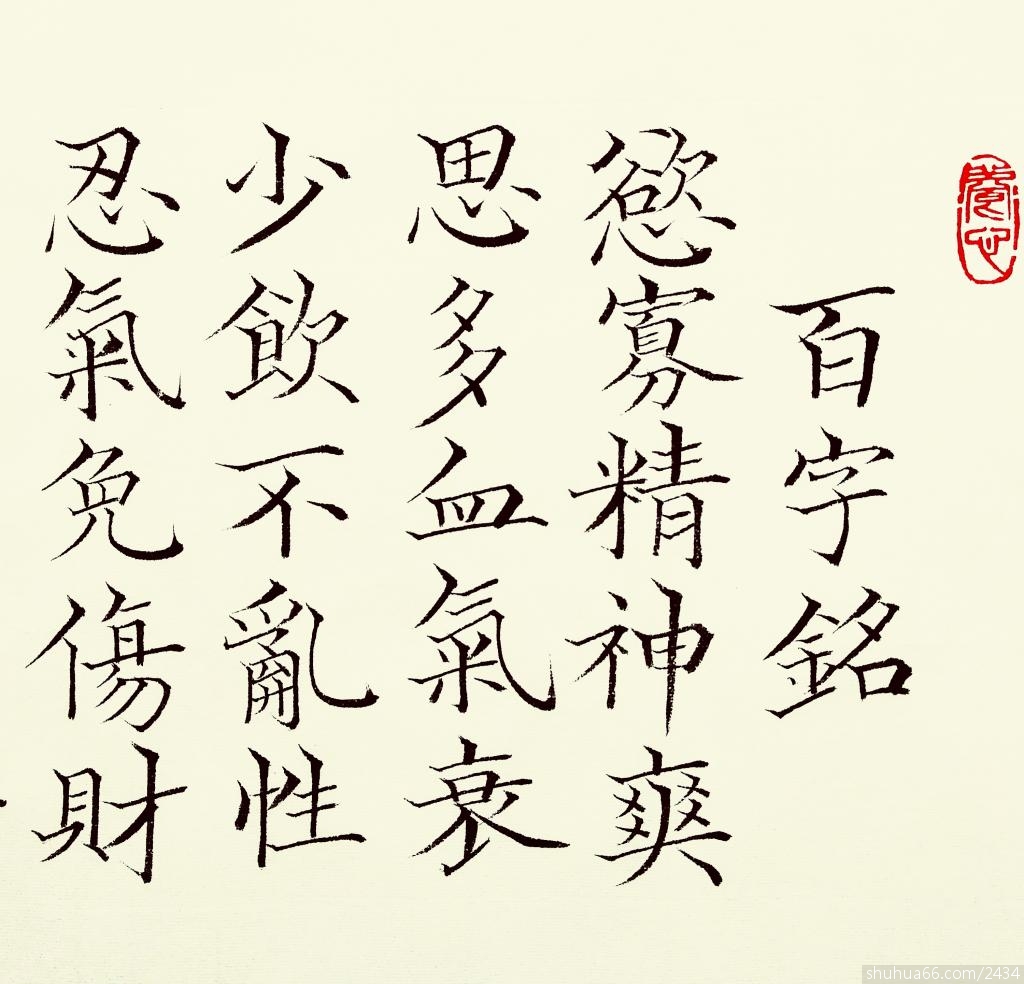 養心
百字銘
慾寡精神爽
思多血氣衰
少飲不亂性
忍氣免傷財
shuhua66.com/2434